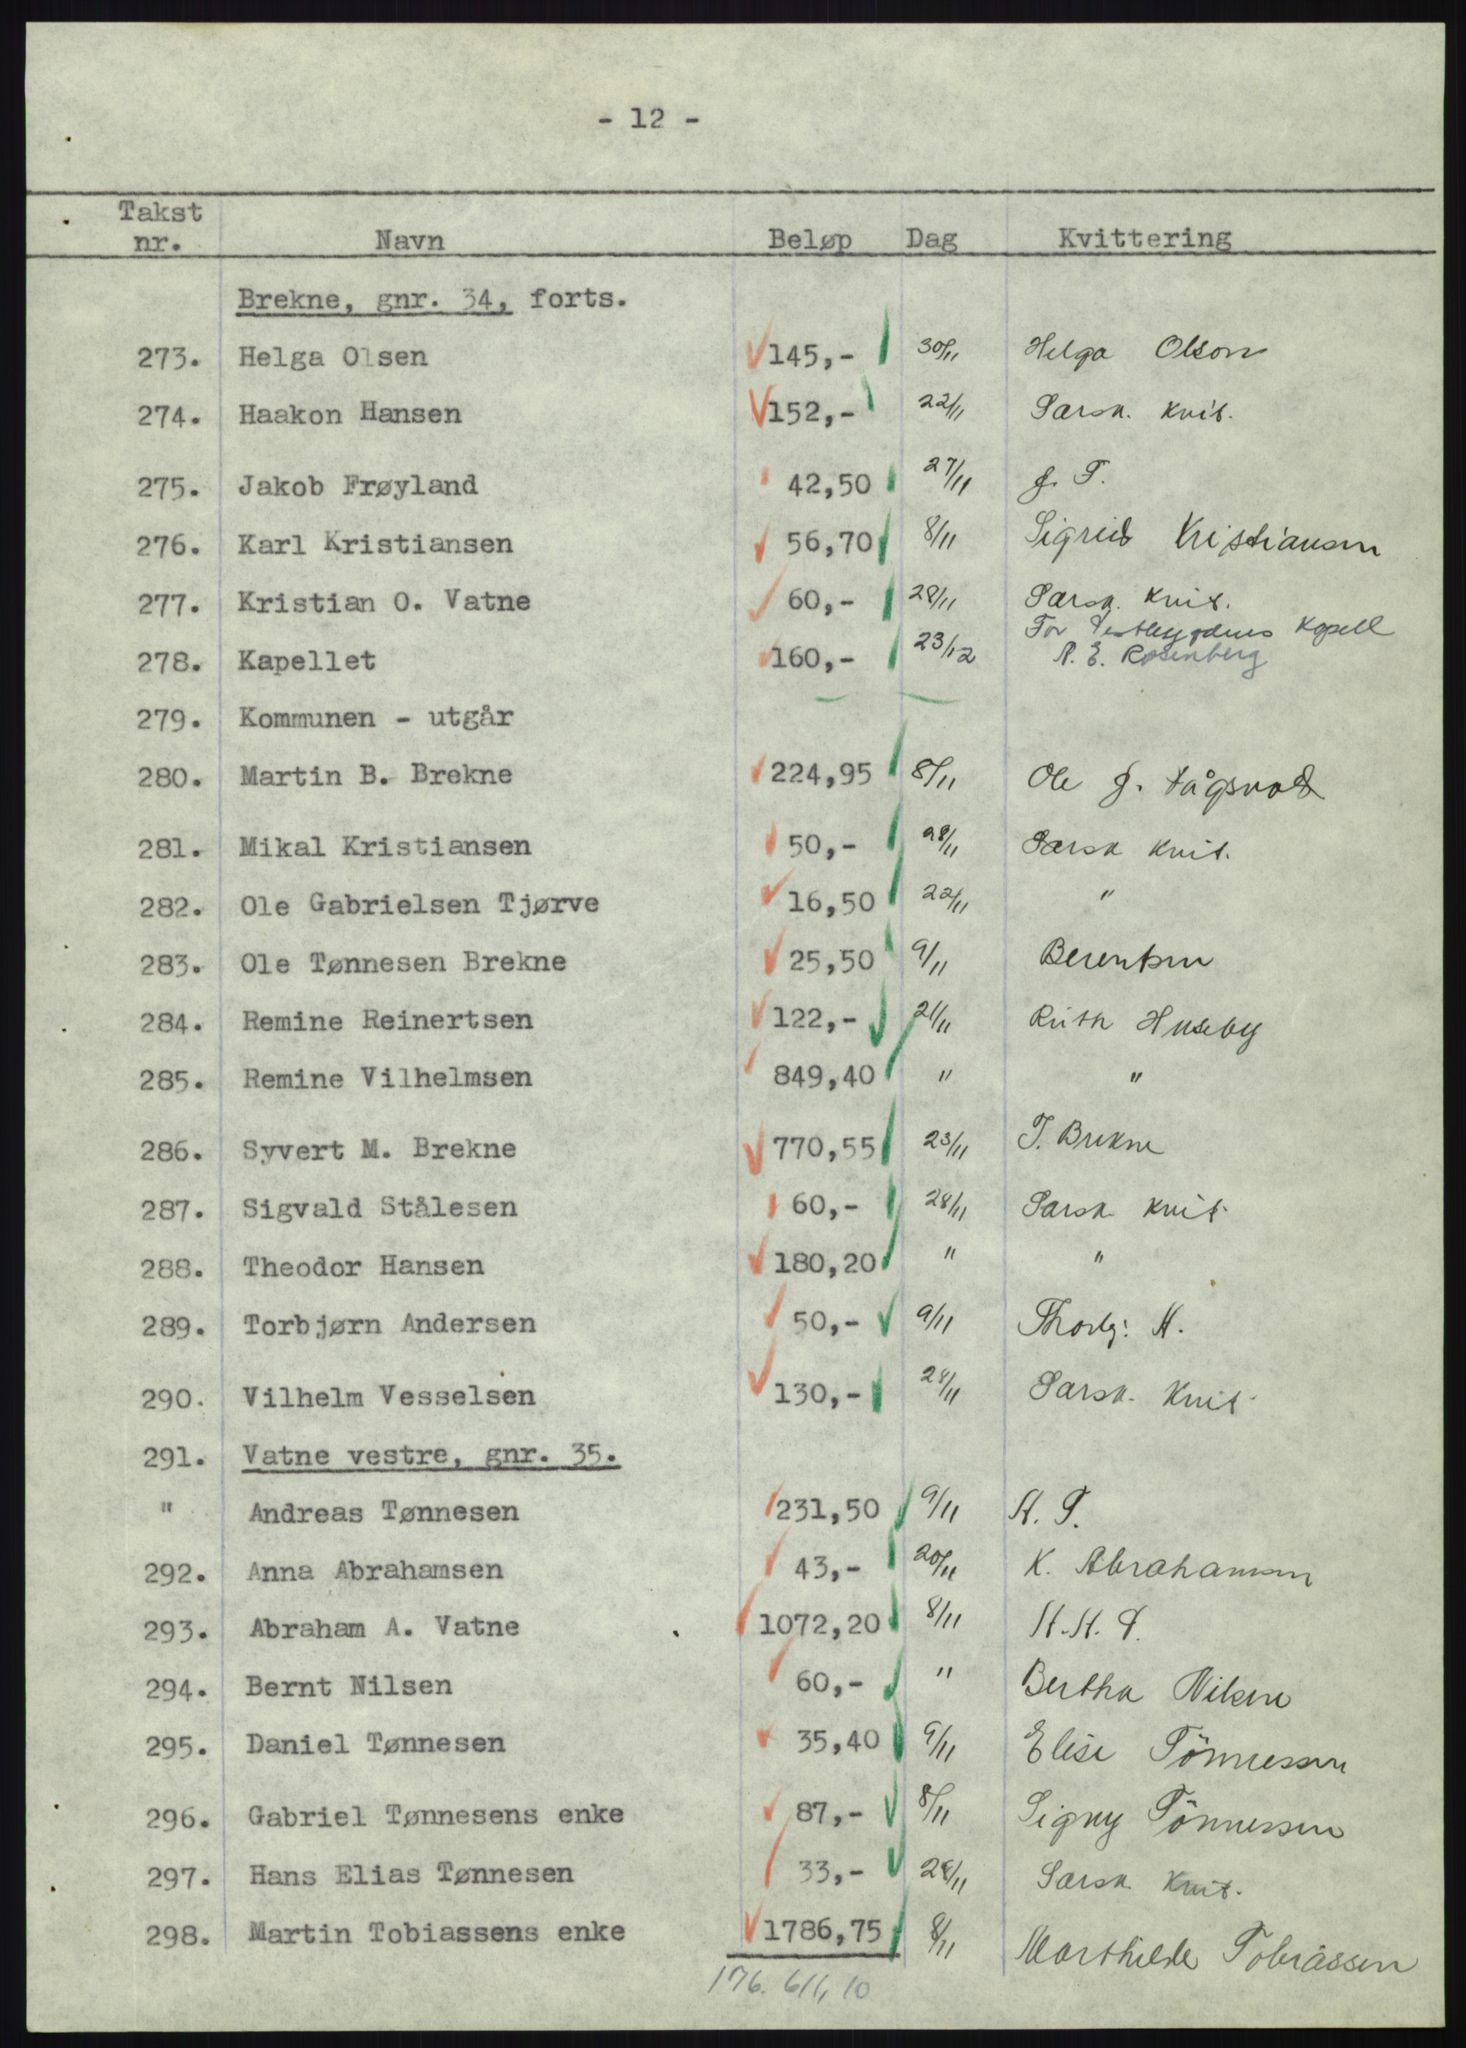 - 12 -
Takst nr. Navn Beløp Dag Kvittering
Brekne, gnr. 34, forts.
273. Helga Olsen 145,- 30/11 Helga Olson
274. Haakon Hansen 152,- 22/11 Særsk. Kvit.
275. Jakob Frøyland 42,50 27/11 J. T.
276. Karl Kristiansen 56,70 8/11 Sigrid Kristiansen
277. Kristian O. Vatne 60,- 28/11 Særsk. Kvit.
For Vestbygdens Kapell
278. Kapellet 160,- 23/12 A. E. Rosenberg
279. Kommunen - utgår
280. Martin B. Brekne 224,95 8/11 Ole J.
281. Mikal Kristiansen 50,- 28/11 Særsk Kvit.
282. Ole Gabrielsen Tjørve 16,50 22/11 "
283. Ole Tønnesen Brekne 25,50 9/11 Berentsen
284. Remine Reinertsen 122,- 21/11 Ruth Huseby
285. Remine Vilhelmsen 849,40 " "
286. Syvert M. Brekne 770,55 23/11 T. Brekne
287. Sigvald Stålesen 60,- 28/11 Særsk Kvit.
288. Theodor Hansen 180,20 " "
289. Torbjørn Andersen 50,- 9/11 Thorbj: A.
290. Vilhelm Vesselsen 130,- 28/11 Særsk. Kvit.
291. Vatne vestre, gnr. 35.
" Andreas Tønnesen 231,50 9/11 A. T.
292. Anna Abrahamsen 43,- 20/11 K. Abrahamsen
293. Abraham A. Vatne 1072,20 8/11 A. A.
294. Bernt Nilsen 60,- " Bertha Nilsen
295. Daniel Tønnesen 35,40 9/11 Elise Tönnessen
296. Gabriel Tønnesens enke 87,- 8/11 Signy Tönnessen
297. Hans Elias Tønnesen 33,- 28/11 Særsk Kvit.
298. Martin Tobiassens enke 1786,75 8/11 Marthilde Tobiassen
176.611,10